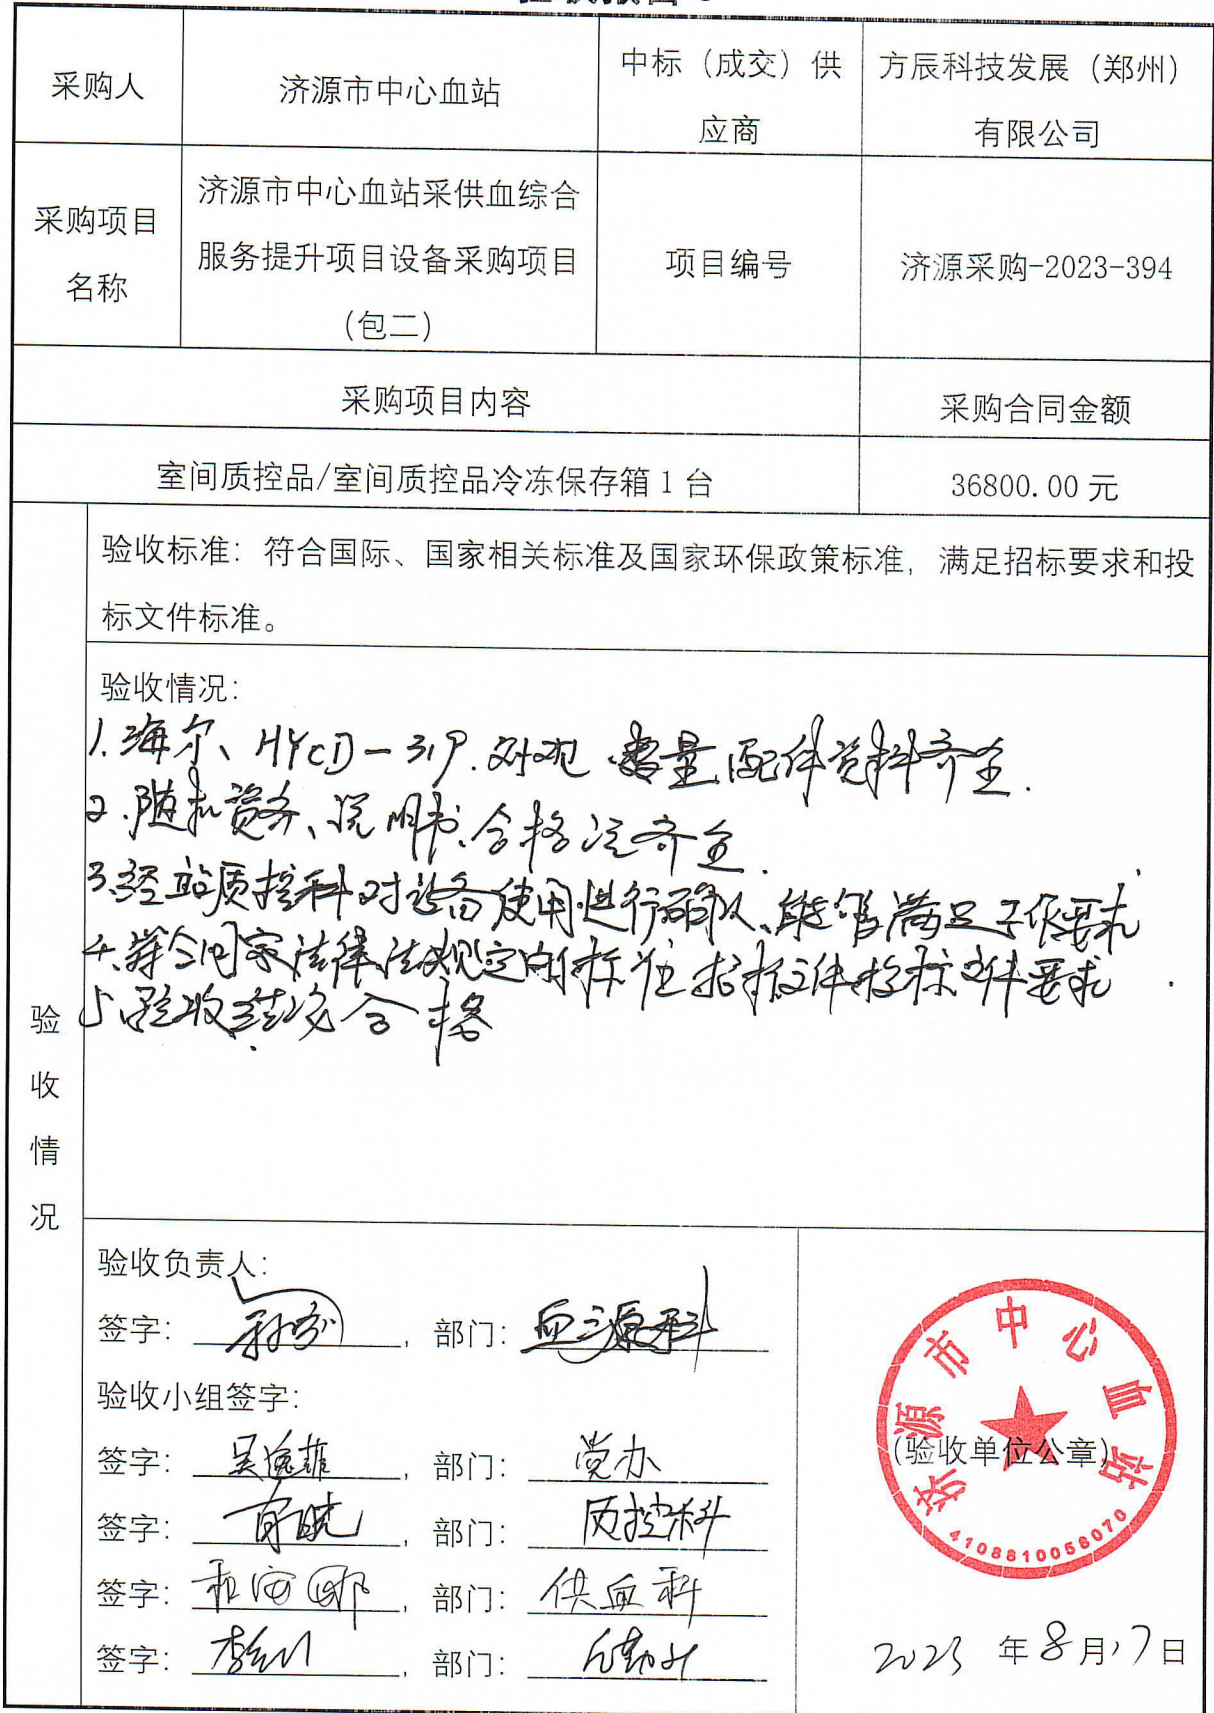 采购人
济源市中心血站
中标（成交）供
应商
方辰科技发展（郑州）
有限公司
采购项目
名称
济源市中心血站采供血综合
服务提升项目设备采购项目
（包二）
项目编号
济源采购-2023-394
采购项目内容
采购合同金额
室间质控品/室间质控品冷冻保存箱 1 台
36800.00 元
验收情况
验收标准：符合国际、国家相关标准及国家环保政策标准，满足招标要求和投
标文件标准。
验收情况：
1.海尔、HYCD-319.外观 数量配件资料齐全.
2.随机资务、说明书.合格证齐全.
3.经站质控科对设备使用进行确认、能够满足工作要求
4.符合国家法律法规规定的标准 招标文件投标文件要求.
5.验收结论合格
验收负责人：
签字： ，部门：血源科
验收小组签字：
签字： ，部门：党办
签字： ，部门：质控科
签字： ，部门：供血科
签字： ，部门：
济源市中心血站
（验收单位公章）
4108810058070
2023 年 8 月 17 日